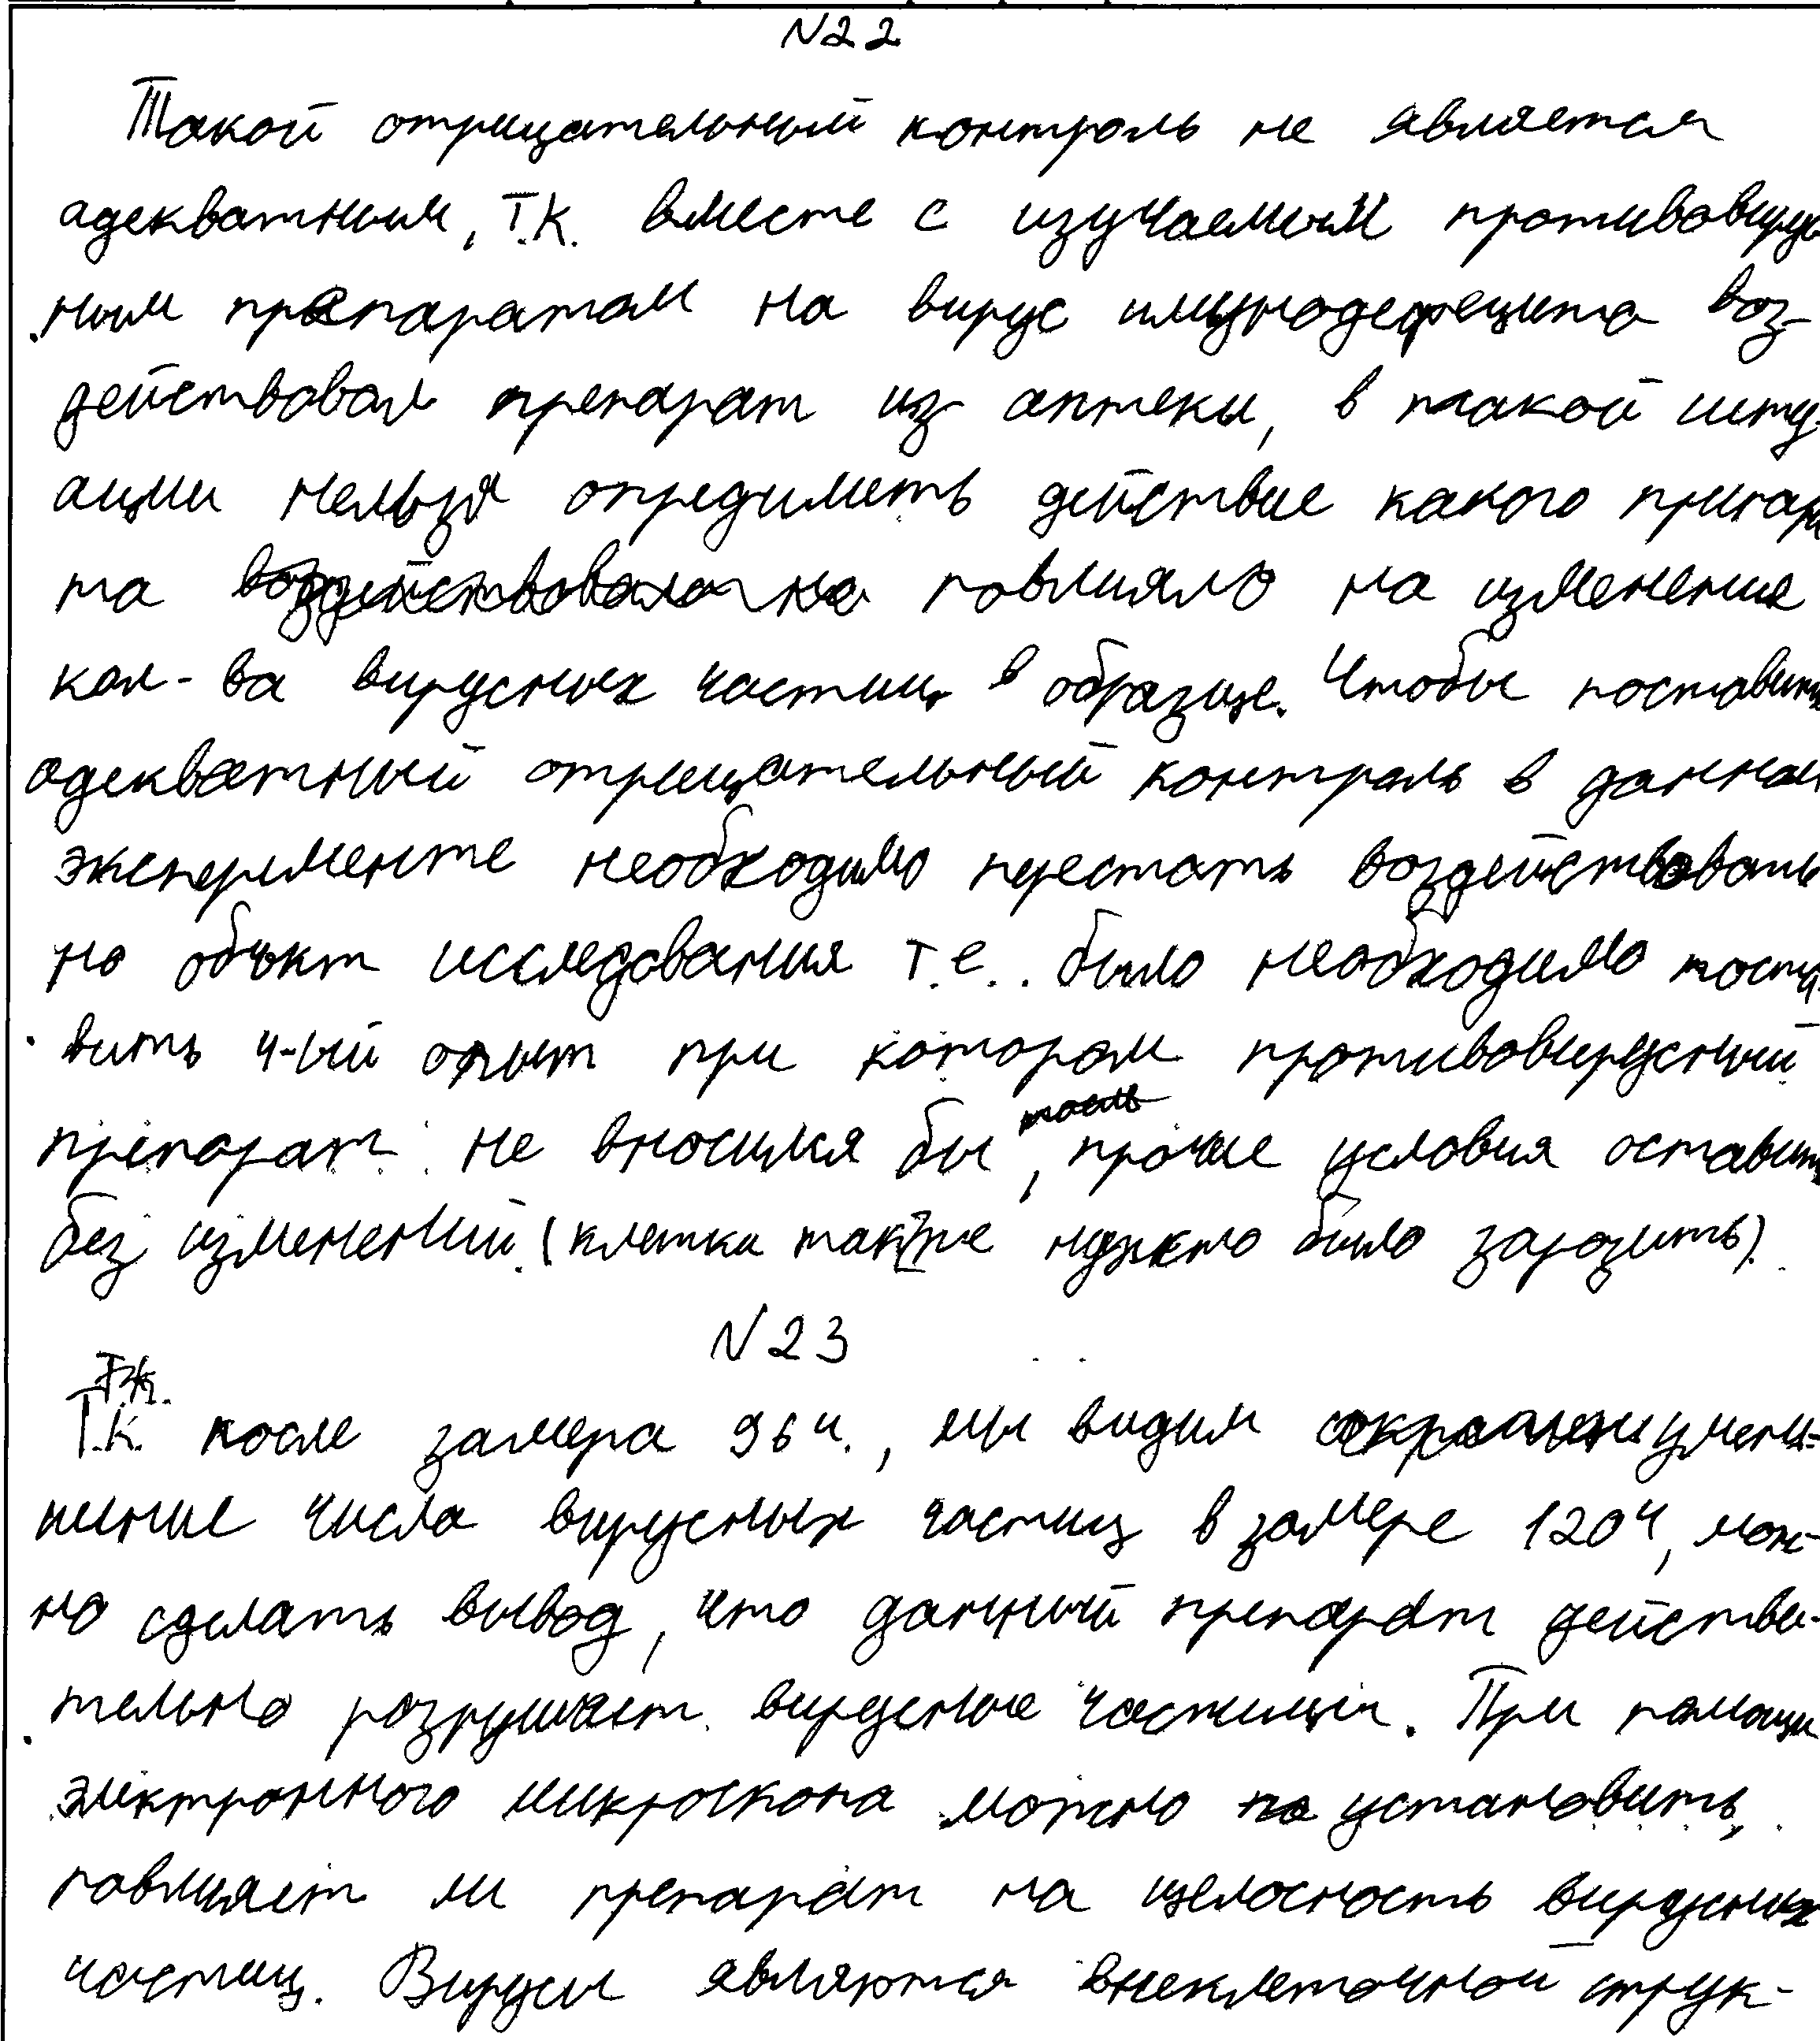 N22
Такой отрицательный контроль не является
адекватным, т.к. вместе с изучаемым противовирус
ным препаратом на вирус имунодефецита воз-
действовал препарат из аптеки, в такой иту-
ации нельзя опредилить действие какого припара
та воздействовало на повлияло на изменение
кол-ва вирусных частиц в образце. Чтобы поставить
адекватный отрицательный контроль в данном
эксперименте необходимо перестать воздействовать
на объкт исследования т.е.. было необходимо поста
вить 4-ый опыт при котором противовирусный
препарат не вносился бы, прочие условия оставить
без изменений (клетки также нужно было заразить).
N23
Т.к.
Т.к. после замера 96ч., мы видим сокращени умень-
шение числа вирусных частиц в замере 120ч, мож-
но сделать вывод, что данный препарат действи-
тельно разрушает вирусные частицы. При помощи
электронного микроскопа можно по установить,
повлияет ли препарат на целосность вирусных
частиц. Вирусы являются внеклеточной струк-